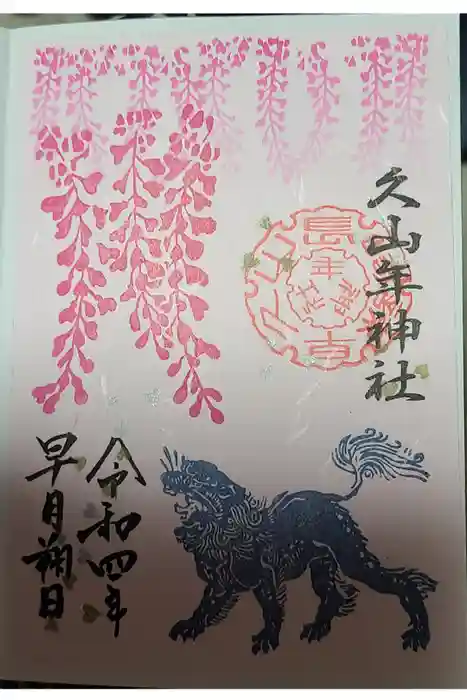 久山年神社
令和四年
早月朔日